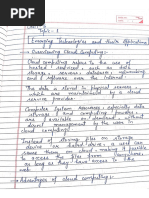 Topic - 1
Emerging Technologies and their Applications
→ Overviewing Cloud Computing:-
Cloud computing refers to the use of
hosted services, such as data
storage, servers, databases, networking
and software over the internet.
The data is stored in physical servers,
which are maintained by a cloud
service provider.
Computer System resources, especially data
storage and computing power, are
available on-demand, without direct
management by the user in
cloud computing.
Instead of storing files on storage
device or hard drive, a user can
save them on cloud, making it possible
to access the files from anywhere,
→ Advantages of cloud computing:-